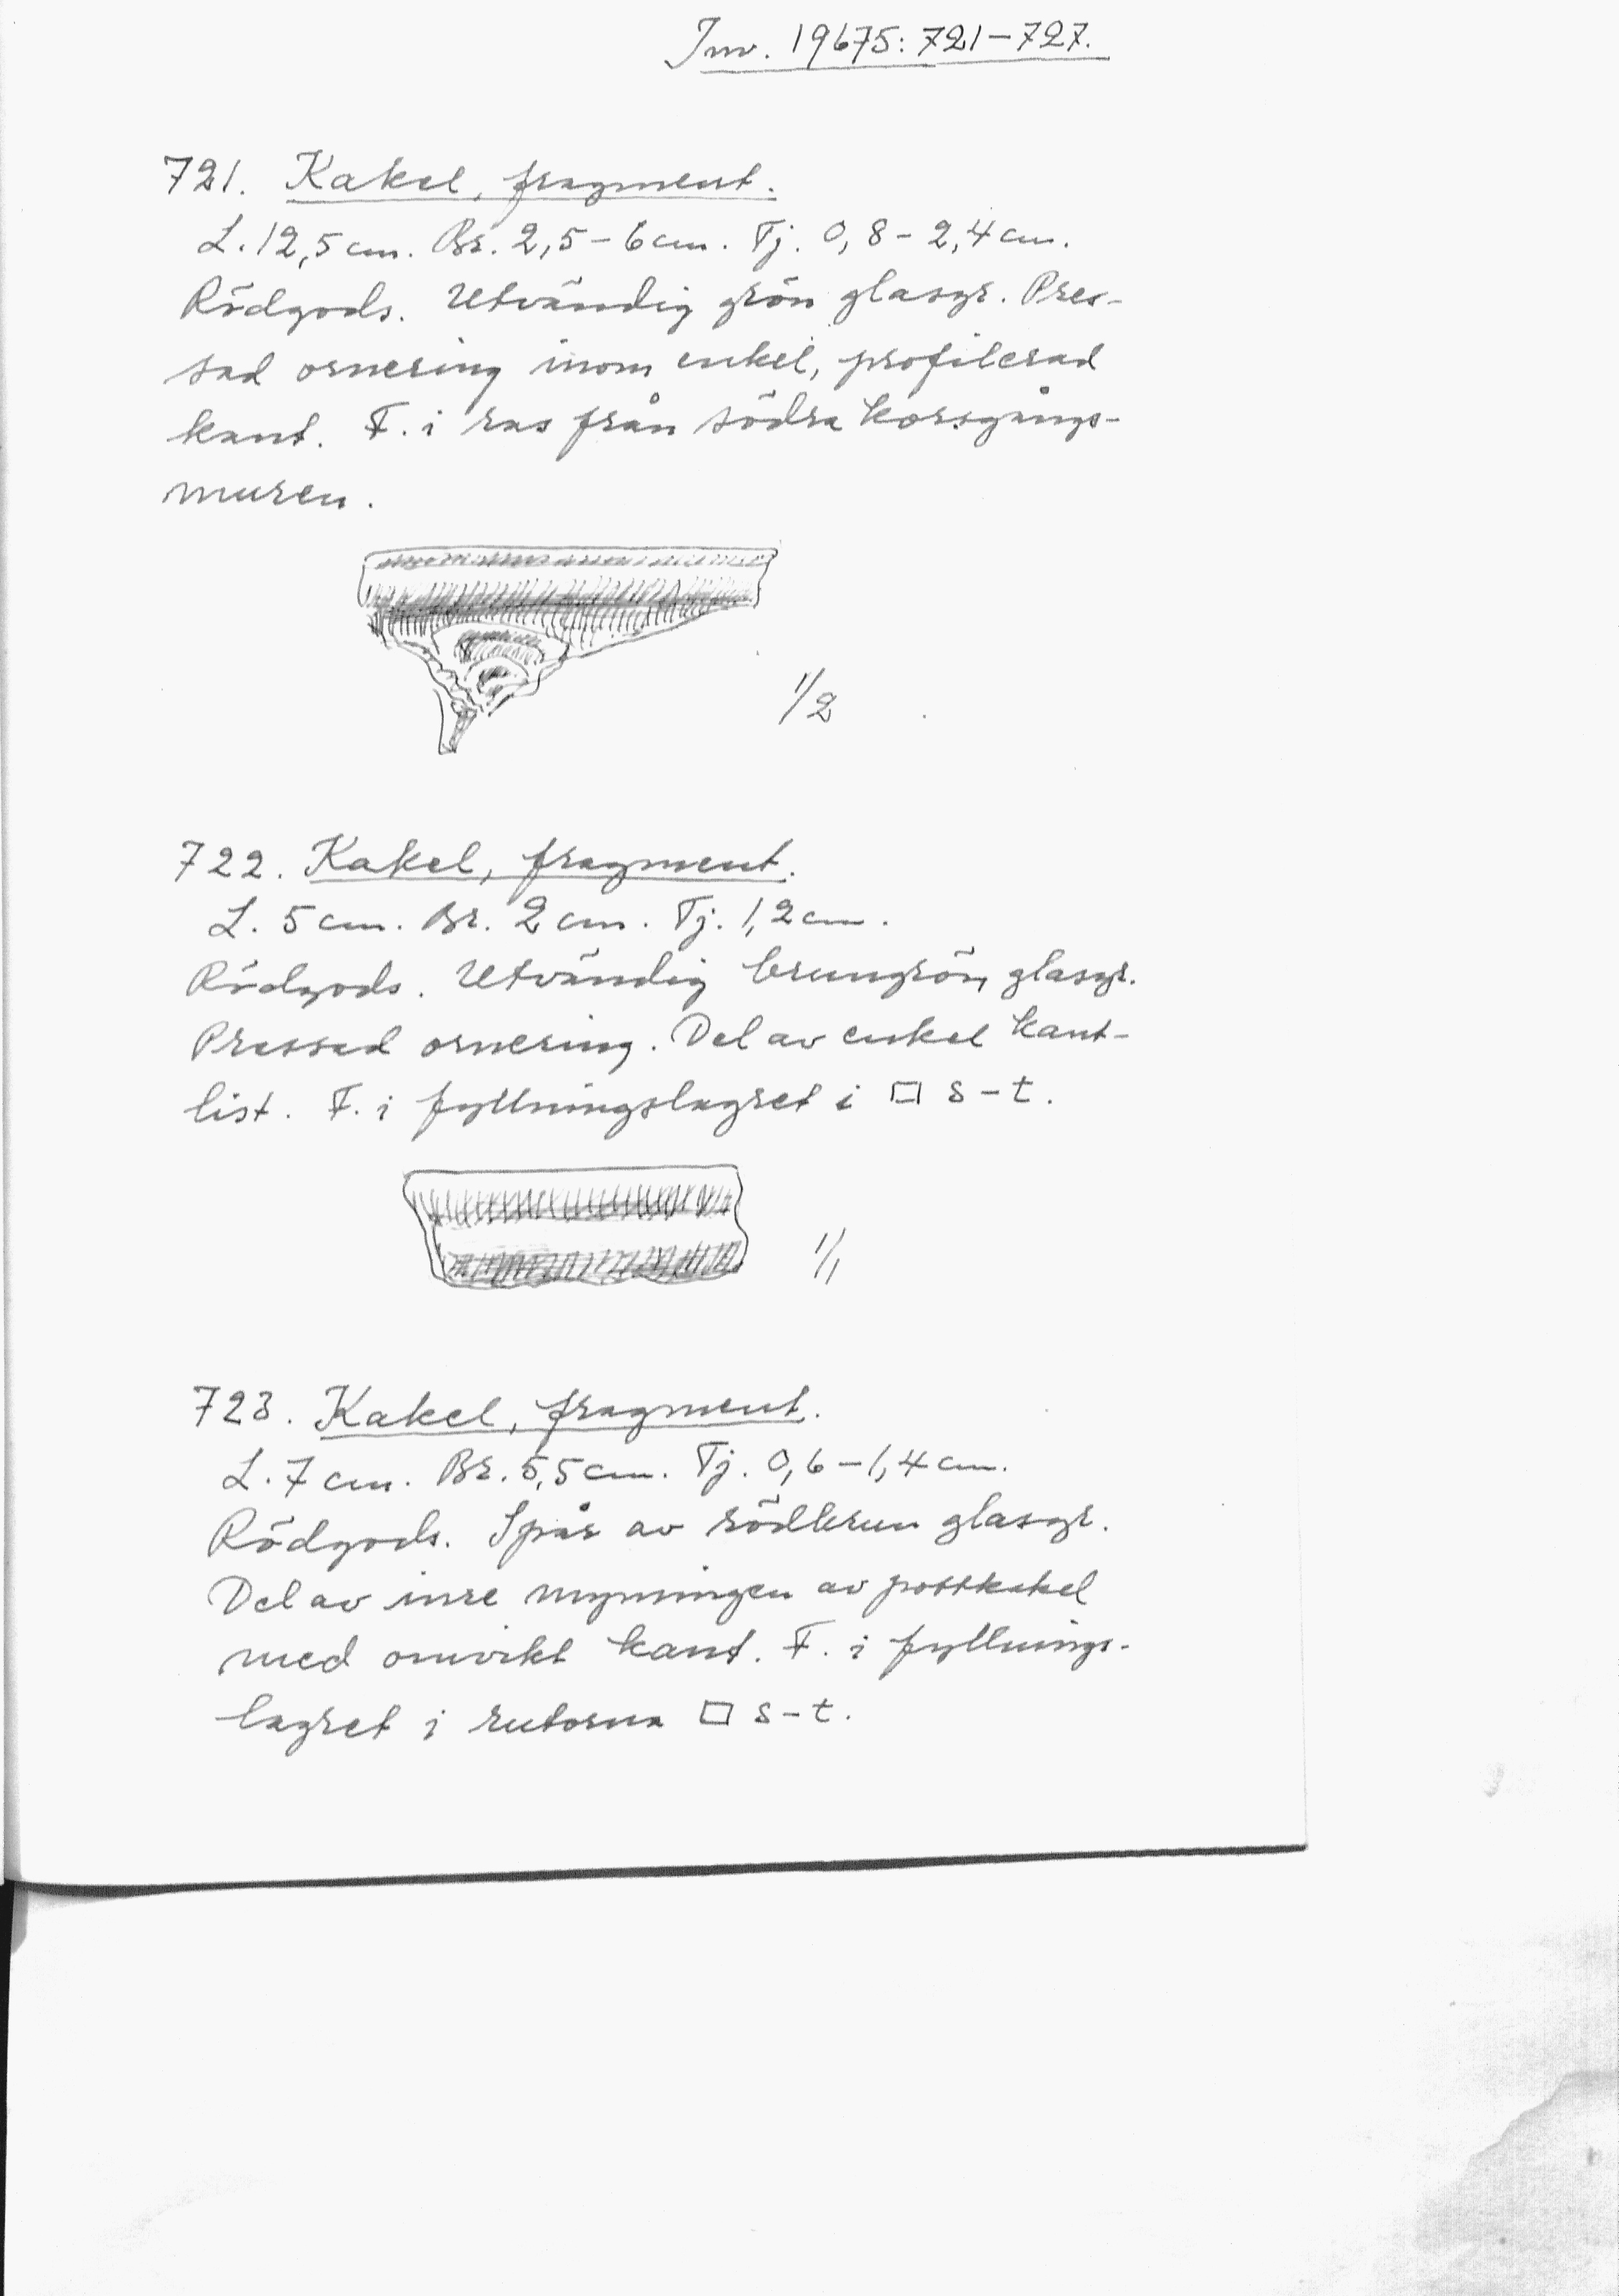 Inv. 19675: 721-727.
721. Kakel, fragment.
L. 12,5 cm. Br. 2,5-6 cm. Tj. 0,8-2,4 cm.
Rödgods. Utvändig grön glasyr. Pres-
sad ornering inom enkel, profilerad
kant. F. i ras från södra korsgångs-
muren.
1/2
722. Kakel, fragment.
L. 5 cm. Br. 2 cm. Tj. 1,2 cm.
Rödgods. Utvändig brungrön glasyr.
Pressad ornering. Del av enkel kant-
list. F. i fyllningslagret i □ s-t.
1/1
723. Kakel, fragment.
L. 7 cm. Br. 5,5 cm. Tj. 0,6-1,4 cm.
Rödgods. Spår av rödbrun glasyr.
Del av inre mynningen av pottkakel
med omvikt kant. F. i fyllnings-
lagret i rutorna □ s-t.